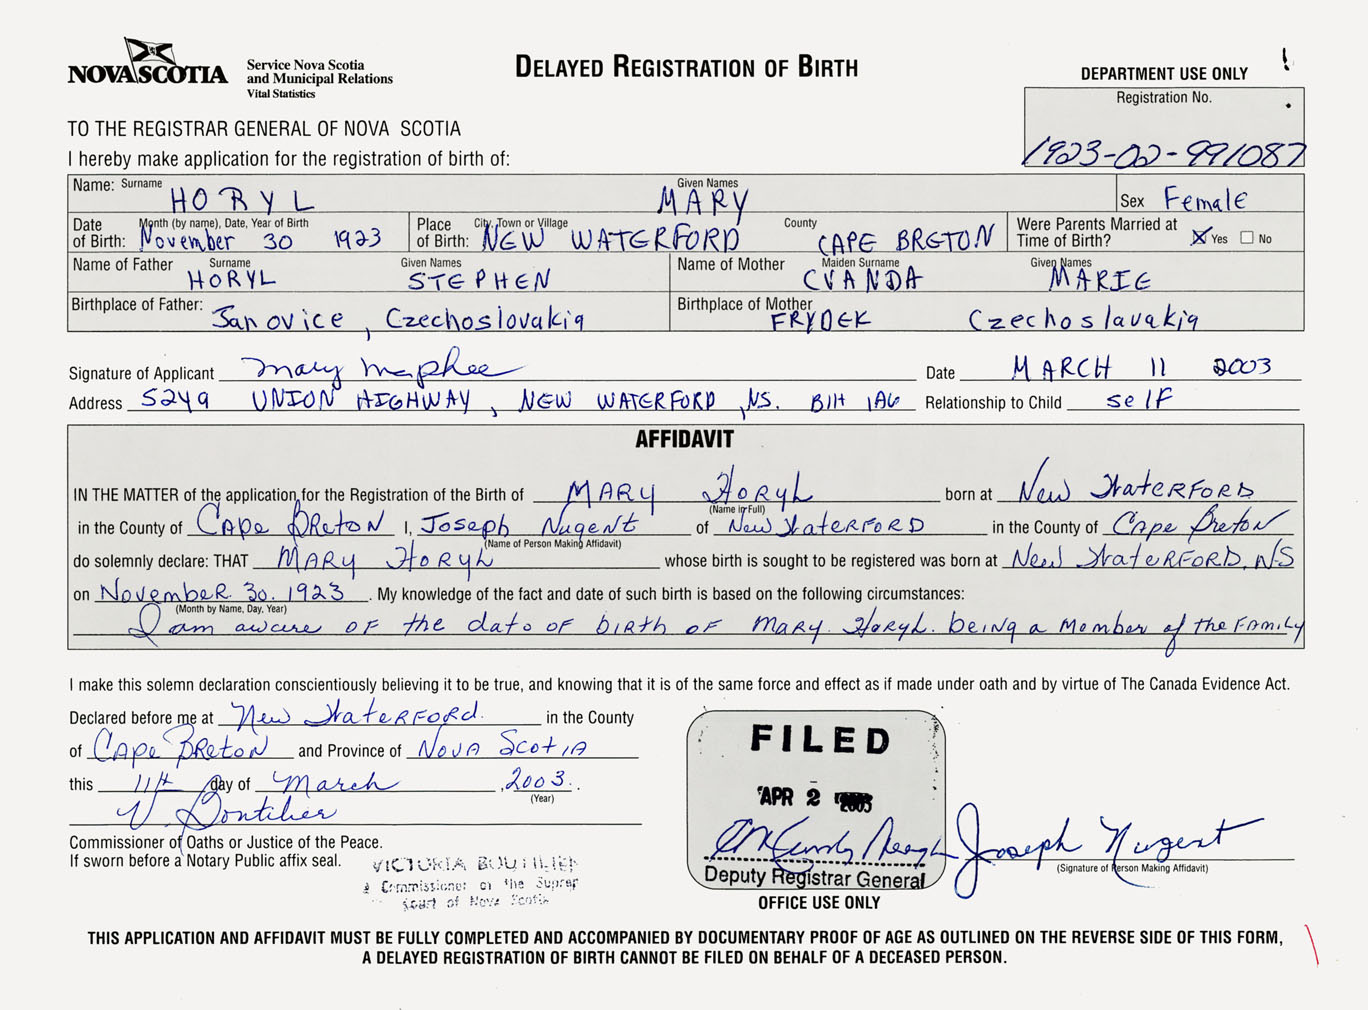 NOVA SCOTIA
Service Nova Scotia
and Municipal Relations
Vital Statistics
DELAYED REGISTRATION OF BIRTH
DEPARTMENT USE ONLY
Registration No.
1923-02-991087
TO THE REGISTRAR GENERAL OF NOVA SCOTIA
I hereby make application for the registration of birth of:
Name: Surname HORYL Given Names MARY Sex Female
Date of Birth: Month (by name), Date, Year of Birth November 30 1923 Place of Birth: City, Town or Village NEW WATERFORD County CAPE BRETON Were Parents Married at Time of Birth? X Yes No
Name of Father Surname HORYL Given Names STEPHEN Name of Mother Maiden Surname CVANDA Given Names MARIE
Birthplace of Father: Janovice, Czechoslovakia Birthplace of Mother FRYDEK Czechoslavakia
Signature of Applicant Mary McPhee Date MARCH 11 2003
Address 5249 UNION HIGHWAY, NEW WATERFORD, NS. B1H 1A6 Relationship to Child self
AFFIDAVIT
IN THE MATTER of the application for the Registration of the Birth of MARY HORYL born at New Waterford
(Name in Full)
in the County of Cape Breton I, Joseph Nugent of New Waterford in the County of Cape Breton
(Name of Person Making Affidavit)
do solemnly declare: THAT MARY HORYL whose birth is sought to be registered was born at New Waterford, NS
on November 30, 1923. My knowledge of the fact and date of such birth is based on the following circumstances:
(Month by Name, Day, Year)
I am aware of the date of birth of Mary Horyl. being a Member of the Family
I make this solemn declaration conscientiously believing it to be true, and knowing that it is of the same force and effect as if made under oath and by virtue of The Canada Evidence Act.
Declared before me at New Waterford. in the County
of Cape Breton and Province of Nova Scotia
this 11th day of March, 2003.
(Year)
V. Boutilier
Commissioner of Oaths or Justice of the Peace.
If sworn before a Notary Public affix seal.
VICTORIA BOUTILIER
a Commissioner of the Suprem
Court of Nova Scotia
FILED
APR 2 2003
Deputy Registrar General
OFFICE USE ONLY
Joseph Nugent
(Signature of Person Making Affidavit)
THIS APPLICATION AND AFFIDAVIT MUST BE FULLY COMPLETED AND ACCOMPANIED BY DOCUMENTARY PROOF OF AGE AS OUTLINED ON THE REVERSE SIDE OF THIS FORM,
A DELAYED REGISTRATION OF BIRTH CANNOT BE FILED ON BEHALF OF A DECEASED PERSON.